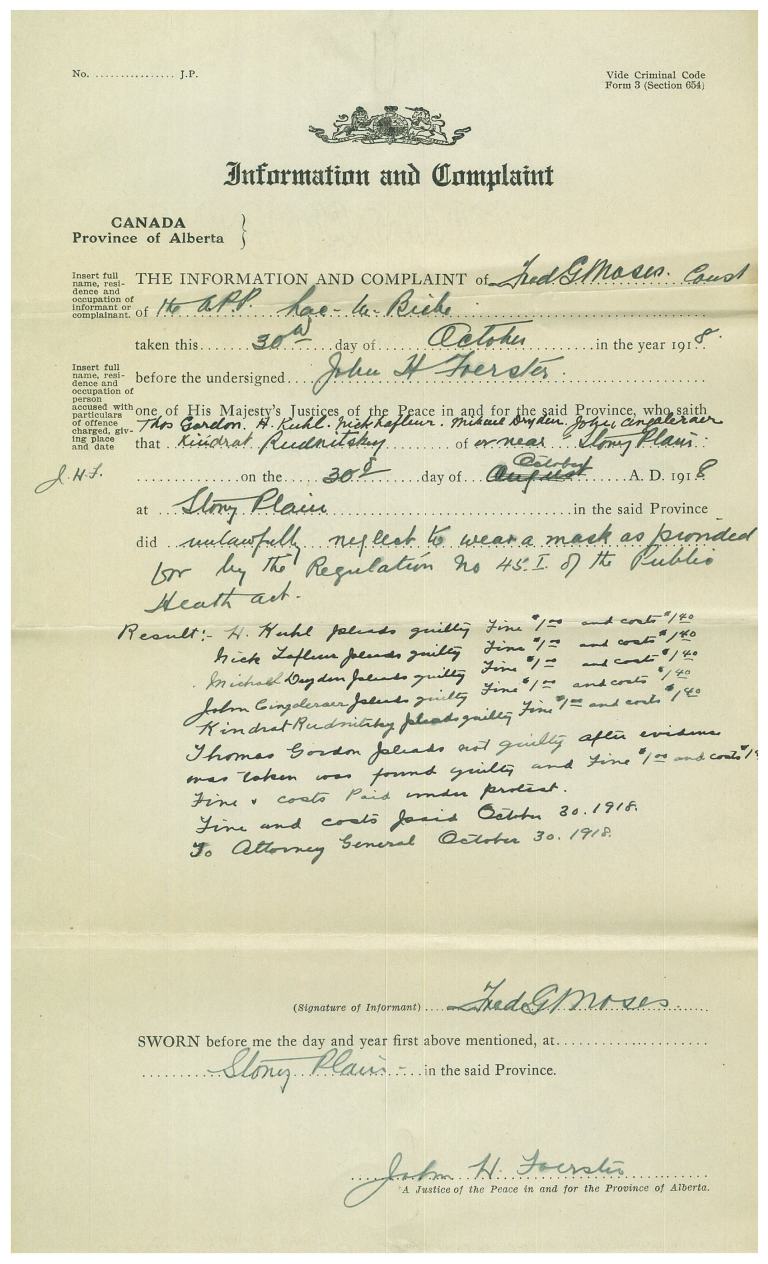 No. ................ J.P.
Vide Criminal Code
Form 3 (Section 654)
Information and Complaint
CANADA
Province of Alberta
Insert full name, resi- dence and occupation of informant or complainant.
THE INFORMATION AND COMPLAINT of Fred G Moses. Const
of the A.P.P. Lac-la-Biche
taken this 30th day of October in the year 1918.
Insert full name, resi- dence and occupation of person accused with particulars of offence charged, giv- ing place and date
before the undersigned John H Foerster.
one of His Majesty's Justices of the Peace in and for the said Province, who saith
Thos Gordon. H. Kuhl. Nick Lafleur. Michael Dryden. John
that Kindrat Rudnitsky of or near Stony Plain:
J.H.F. on the 30th day of August October A. D. 1918
at Stony Plain in the said Province
did unlawfully neglect to wear a mask as provided
for by the Regulation No 45.I. of the Public
Heath act.
Result:- H. Kuhl pleads guilty Fine $1.00 and costs $1.40
Nick Lafleur pleads guilty Fine $1.00 and costs $1.40
Michael Dryden pleads guilty Fine $1.00 and costs $1.40
John pleads guilty Fine $1.00 and costs $1.40
Kindrat Rudnitsky pleads guilty Fine $1.00 and costs $1.40
Thomas Gordon pleads not guilty after evidence
was taken was found guilty and Fine $1.00 and costs
Fine & costs Paid under protest.
Fine and costs paid October 30. 1918.
To Attorney General October 30. 1918.
(Signature of Informant) Fred G Moses
SWORN before me the day and year first above mentioned, at
Stony Plain - in the said Province.
John H. Foerster
A Justice of the Peace in and for the Province of Alberta.